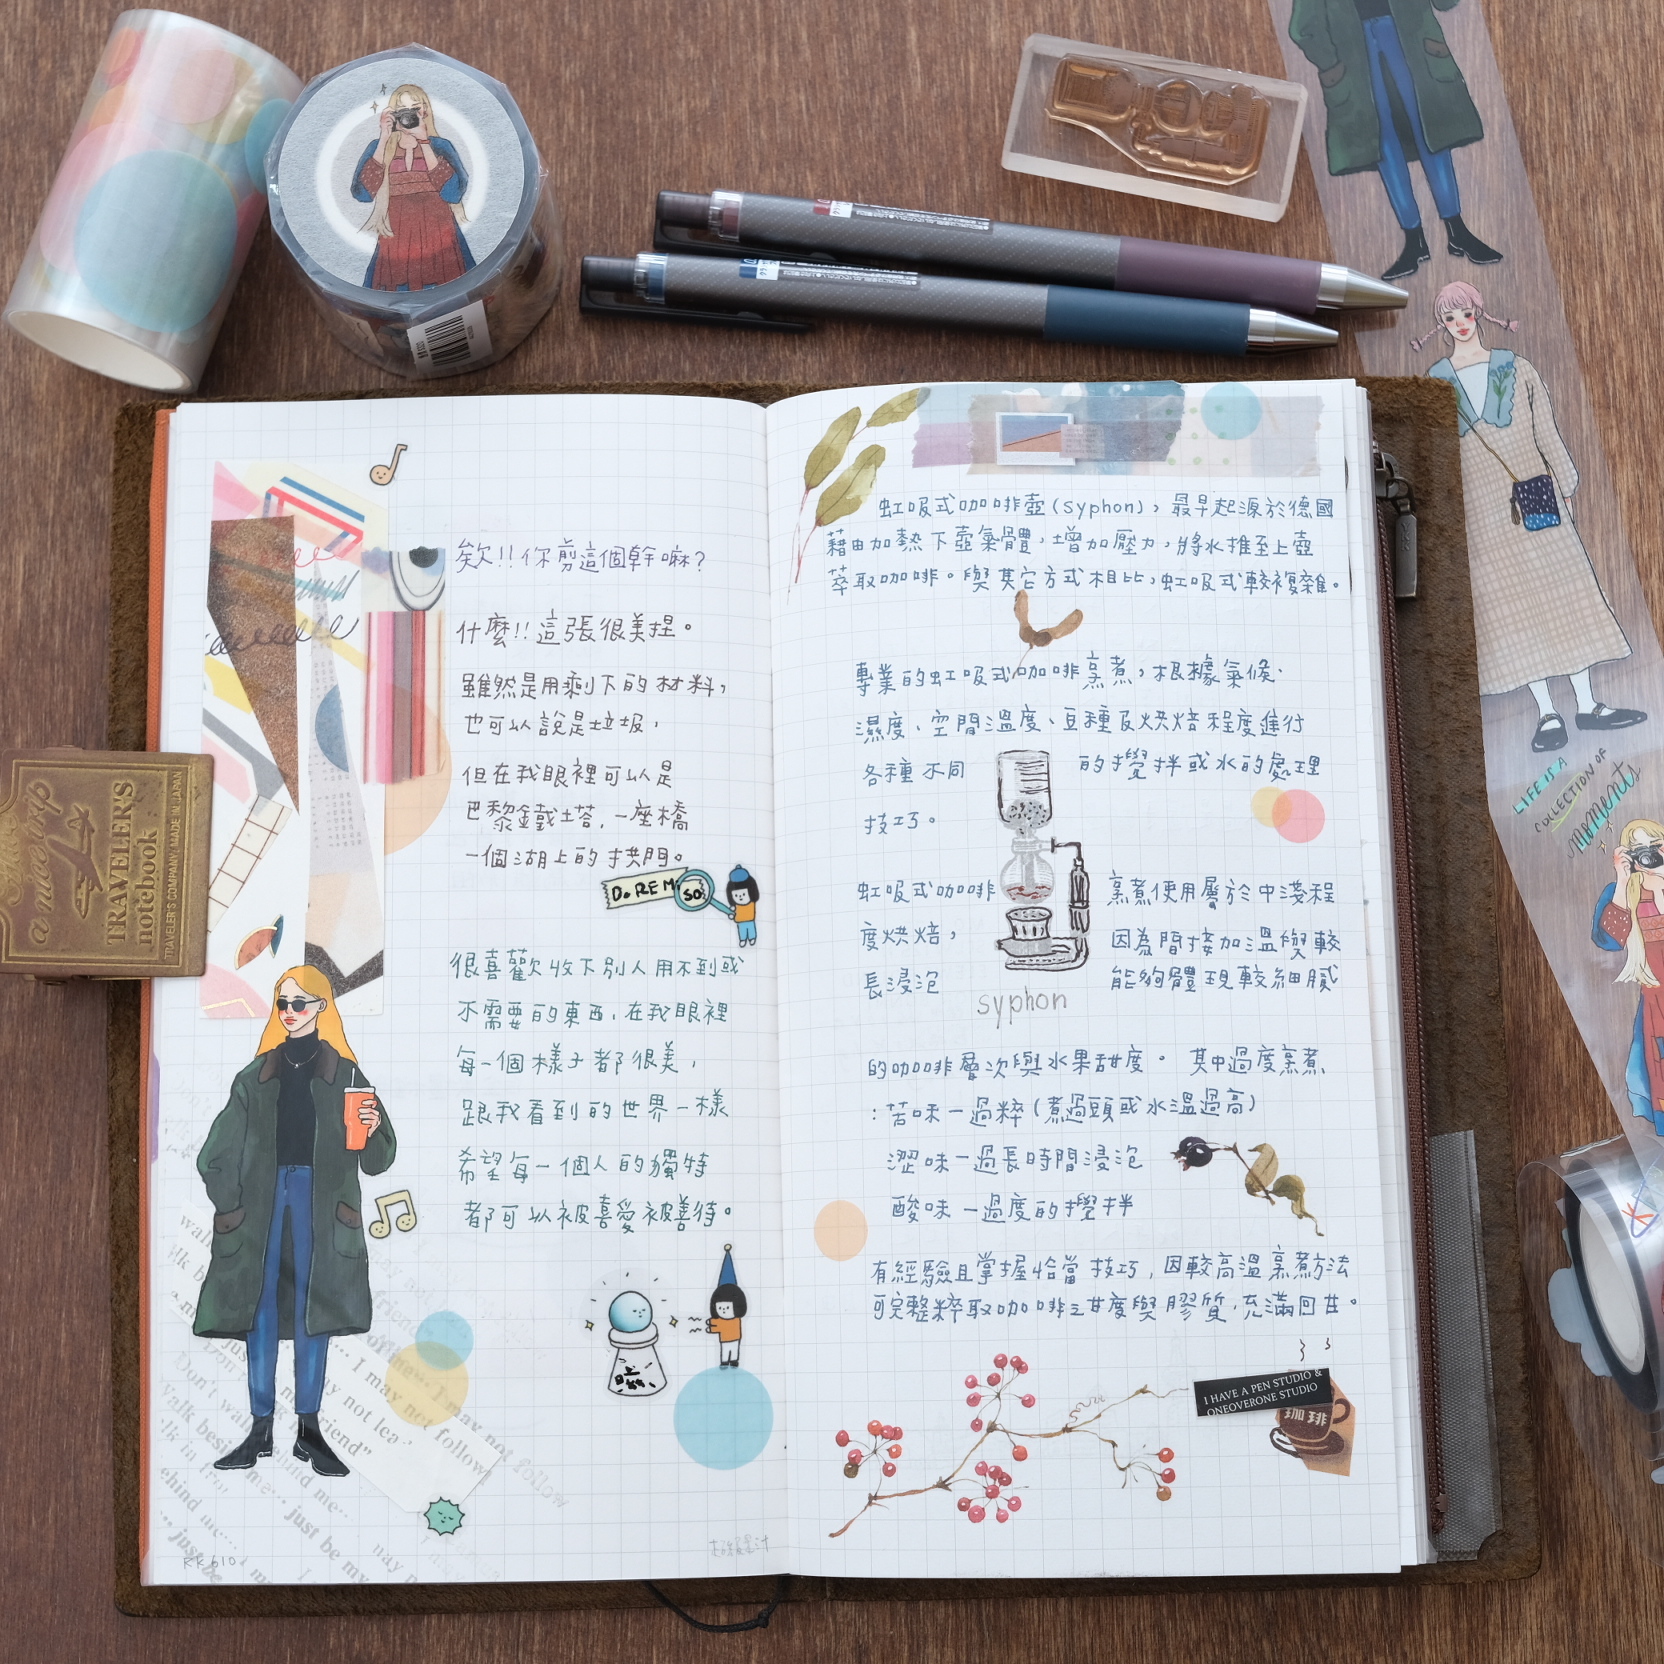 欸!!你剪這個幹嘛?
什麼!!這張很美捏。
雖然是用剩下的材料,
也可以說是垃圾,
但在我眼裡可以是
巴黎鐵塔,一座橋
一個湖上的拱門。
Do RE Mi SO
很喜歡收下別人用不到或
不需要的東西,在我眼裡
每一個樣子都很美,
跟我看到的世界一樣
希望每一個人的獨特
都可以被喜愛被善待。
虹吸式咖啡壺(syphon),最早起源於德國
藉由加熱下壺氣體,增加壓力,將水推至上壺
萃取咖啡。與其它方式相比,虹吸式較複雜。
專業的虹吸式咖啡烹煮,根據氣候、
濕度、空間溫度、豆種及烘焙程度進行
各種不同 的攪拌或水的處理
技巧。
虹吸式咖啡 烹煮使用屬於中淺程
度烘焙, 因為間接加溫與較
長浸泡 能夠體現較細膩
syphon
的咖啡層次與水果甜度。 其中過度烹煮
:苦味-過粹(煮過頭或水溫過高)
澀味-過長時間浸泡
酸味-過度的攪拌
有經驗且掌握恰當技巧,因較高溫烹煮方法
可完整粹取咖啡之甘度與膠質,充滿回甘。
I HAVE A PEN STUDIO &
ONEOVERONE STUDIO
珈琲
TRAVELER'S
notebook
TRAVELER'S COMPANY MADE IN JAPAN
LIFE IS A
COLLECTION OF
moments